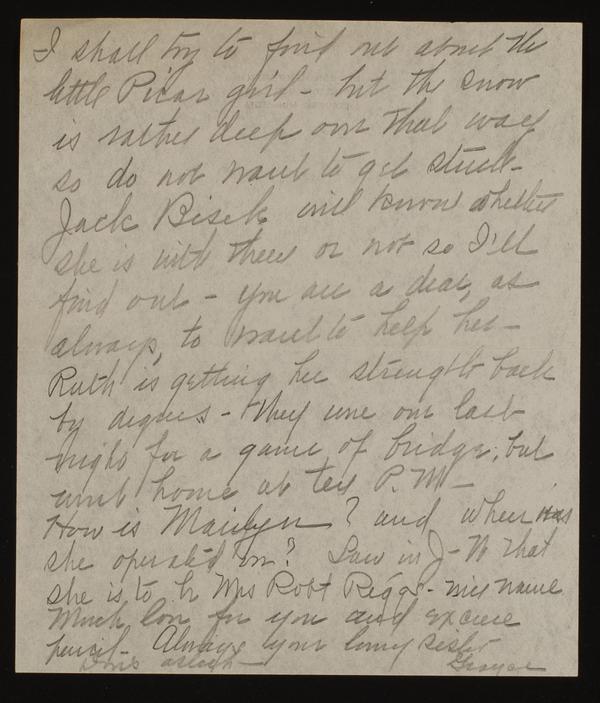 I shall try to find out about the
little Pilar girl - but the snow
is rather deep over that way
so do not want to get stuck -
Jack Bisek will know whether
she is with them or not so I'll
find out - you are a dear, as
always, to want to help her -
Ruth is getting her strength back
by degrees - They were over last
night for a game of bridge, but
went home at ten P.M. -
How is Marilyn? and when was
she operated on? Saw in J-N that
she is to be Mrs Robt Riggs - nice name
Much love for you and excuse
pencil - Always your loving sister
Doris asleep - Grayce